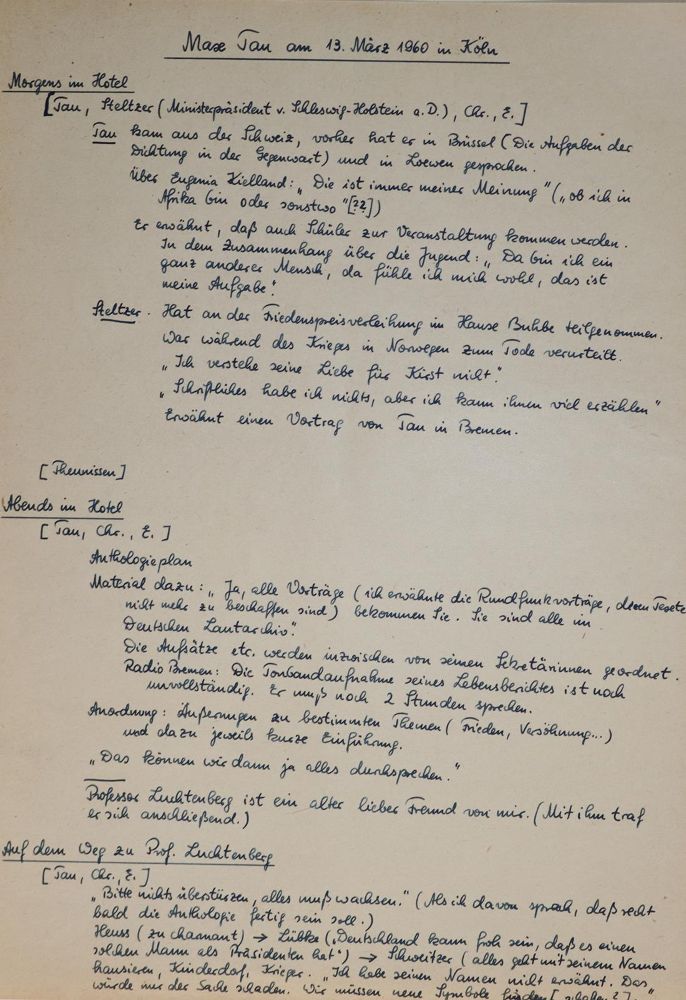 Max Tau am 13. März 1960 in Köln
Morgens im Hotel
[Tau, Steltzer (Ministerpräsident v. Schleswig-Holstein a.D.), Chr., E.]
Tau kam aus der Schweiz, vorher hat er in Brüssel (Die Aufgaben der
Dichtung in der Gegenwart) und in Loewen gesprochen.
Über Eugenia Kielland: „Die ist immer meiner Meinung" („ob ich in
Afrika bin oder sonstwo"[??])
Er erwähnt, daß auch Schüler zur Veranstaltung kommen werden.
In dem Zusammenhang über die Jugend: „Da bin ich ein
ganz anderer Mensch, da fühle ich mich wohl, das ist
meine Aufgabe."
Steltzer. Hat an der Friedenspreisverleihung im Hause Buhbe teilgenommen.
War während des Krieges in Norwegen zum Tode verurteilt.
„Ich verstehe seine Liebe für Kirst nicht."
„Schriftliches habe ich nichts, aber ich kann ihnen viel erzählen"
Erwähnt einen Vortrag von Tau in Bremen.
[Theunissen]
Abends im Hotel
[Tau, Chr., E.]
Anthologieplan
Material dazu: „Ja, alle Vorträge (ich erwähnte die Rundfunkvorträge, deren Texte
nicht mehr zu beschaffen sind) bekommen Sie. Sie sind alle im
Deutschen Lautarchiv."
Die Aufsätze etc. werden inzwischen von seinen Sekretärinnen geordnet.
Radio Bremen: Die Tonbandaufnahme seines Lebensberichtes ist noch
unvollständig. Er muß noch 2 Stunden sprechen.
Anordnung: Äußerungen zu bestimmten Themen (Frieden, Versöhnung...)
und dazu jeweils kurze Einführung.
„Das können wir dann ja alles durchsprechen."
Professor Luchtenberg ist ein alter lieber Freund von mir. (Mit ihm traf
er sich anschließend.)
Auf dem Weg zu Prof. Luchtenberg
[Tau, Chr., E.]
„Bitte nichts überstürzen, alles muß wachsen." (Als ich davon sprach, daß recht
bald die Anthologie fertig sein soll.)
Heuss (zu charmant) → Lübke („Deutschland kann froh sein, daß es einen
solchen Mann als Präsidenten hat") → Schweitzer (alles geht mit seinem Namen
hausieren, Kinderdorf, Krieger. „Ich habe seinen Namen nicht erwähnt. Das"
würde nur der Sache schaden. Wir müssen neue Symbole finden